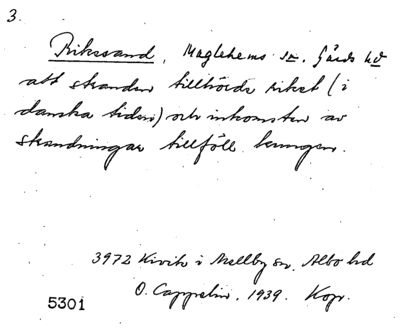 3.
Rikssand, Maglehems sn. Gärds hd
att stranden tillhörde riket (i
danska tiden) och inkomsten av
strandningar tillföll kungen.
3972 Kivik i Mellby sn. Albo hd
O. Cappelin. 1939. Kop.
5301